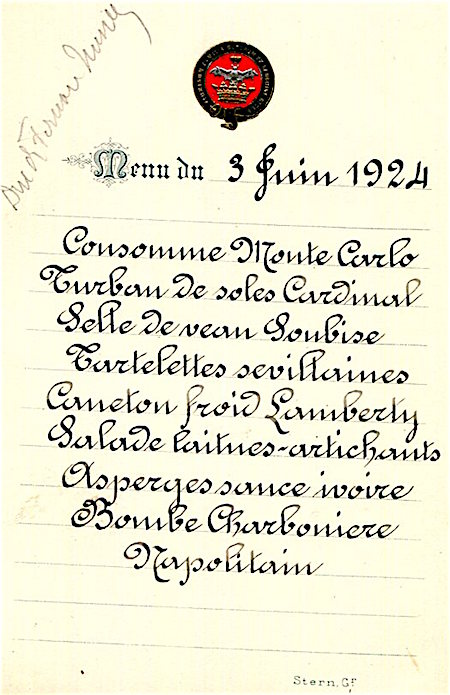 Duc de Fernan Nunez
Menu du 3 Juin 1924
Consomme Monte Carlo
Turban de soles Cardinal
Selle de veau Soubise
Tartelettes sevillaines
Caneton froid Lamberty
Salade laitues-artichauts
Asperges sauce ivoire
Bombe Charboniere
Napolitain
Stern. Gr.